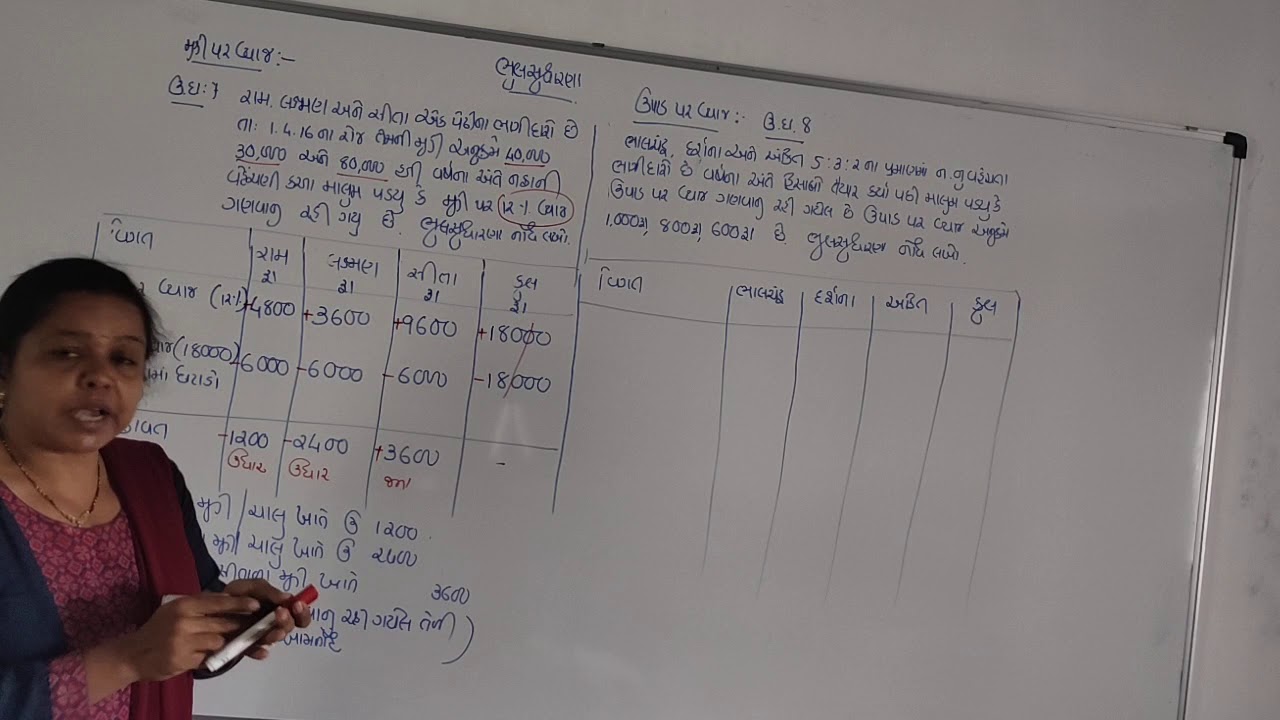 મુડી પર વ્યાજ:-
ભુલસુધારણા
ઉદા:7 રામ, લક્ષ્મણ અને સીતા એક પેઢીના ભાગીદારો છે
તા: 1.4.16 ના રોજ તેમની મુડી અનુક્રમે 40,000
30,000 અને 80,000 હતી વર્ષના અંતે નફાની
વહેંચણી કર્યા માલુમ પડ્યુ કે મુડી પર 12% વ્યાજ
ગણવાનુ રહી ગયુ છે. ભુલસુધારણા નોંધ લખો.
વિગત રામ રૂા લક્ષ્મણ રૂા સીતા રૂા કુલ રૂા
વ્યાજ (12%) +4800 +3600 +9600 +18000
(18000) -6000 -6000 -6000 -18000
ઘટાડો
-1200 -2400 +3600 -
ઉધાર ઉધાર જમા
મુડી/ચાલુ ખાતે ઉ 1200
મુડી ચાલુ ખાતે ઉ 2400
મુડી ખાતે 3600
રહી ગયેલ તેની
આમનોંધ
ઉપાડ પર વ્યાજ:- ઉદા.8
ભાલચંદ્ર, દર્શના અને અંકિત 5:3:2 ના પ્રમાણમાં ન.નુ વહેંચતા
ભાગીદારો છે વર્ષના અંતે હિસાબો તૈયાર કર્યા પછી માલુમ પડ્યુ કે
ઉપાડ પર વ્યાજ ગણવાનુ રહી ગયેલ છે ઉપાડ પર વ્યાજ અનુક્રમે
1,000રૂા, 800રૂા, 600રૂા છે. ભુલસુધારણા નોંધ લખો.
વિગત ભાલચંદ્ર દર્શના અંકિત કુલ